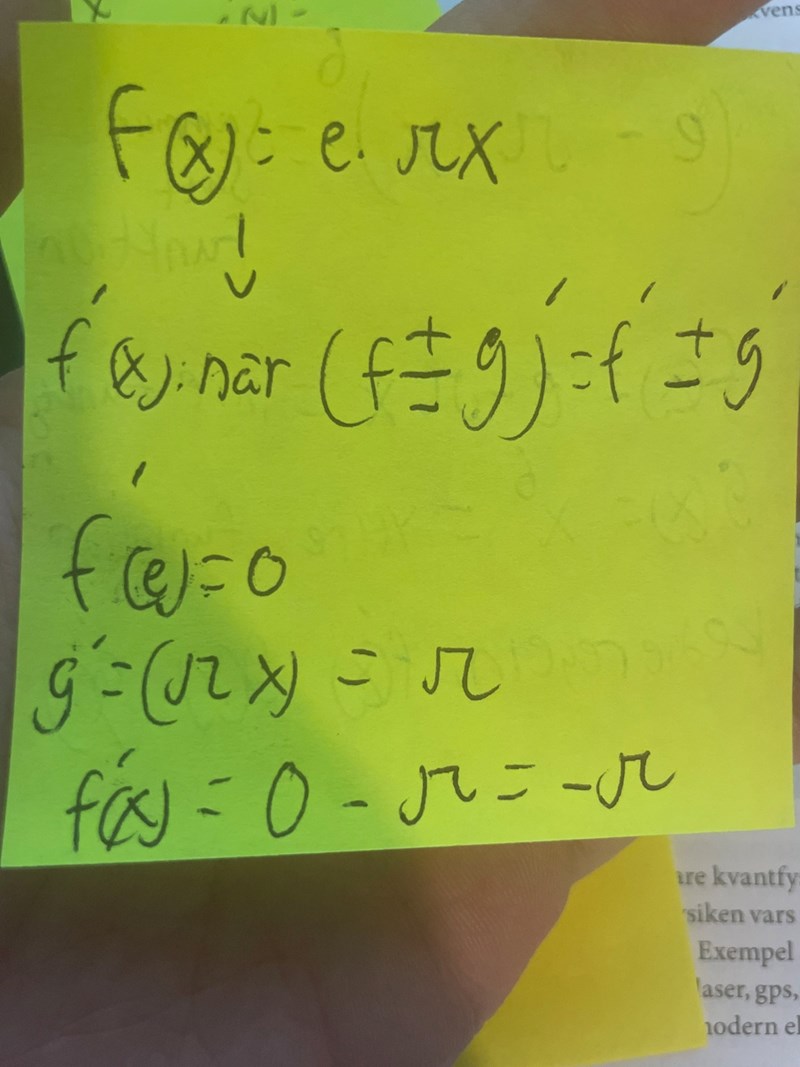 f(x) = e · πx
↓
f'(x): när (f ± g)' = f' ± g'
f'(e) = 0
g' = (πx) = π
f'(x) = 0 - π = -π
kvens
are kvantfy
siken vars
Exempel
laser, gps,
modern el